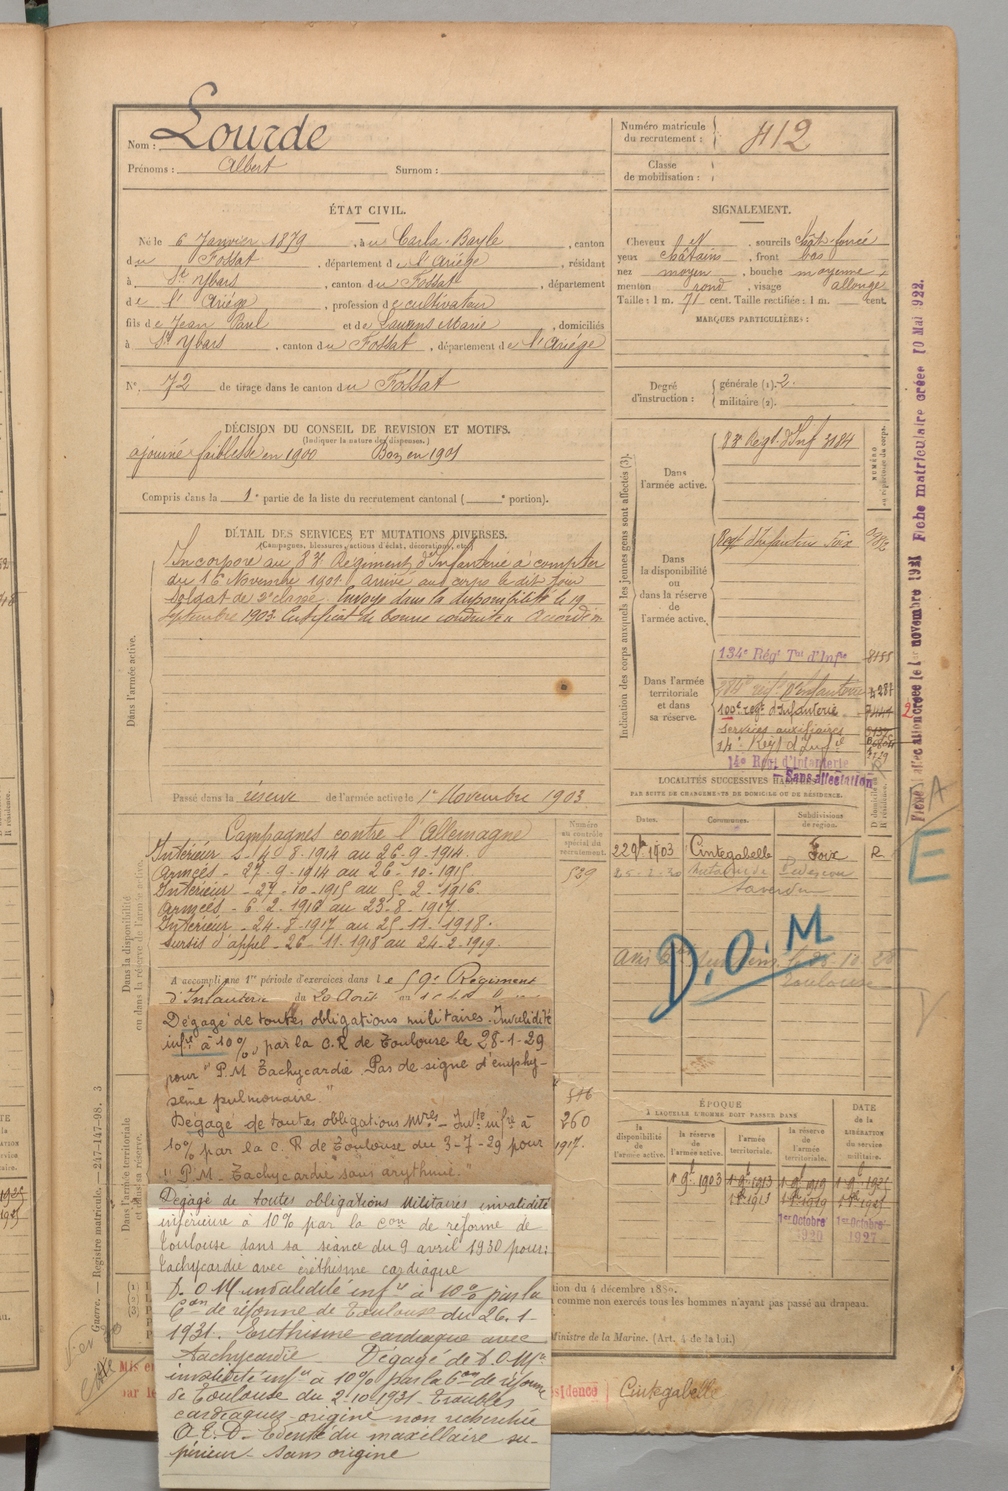 Nom : Lourde
Prénoms : Albert Surnom :
Numéro matricule
du recrutement : 412
Classe
de mobilisation :
ÉTAT CIVIL.
Né le 6 Janvier 1879, à u Carla-Bayle, canton
du Fossat, département de l'Ariège, résidant
à St Ybars, canton du Fossat, département
de l'Ariège, profession de cultivateur
fils de Jean Paul et de Laurens Marie, domiciliés
à St Ybars, canton du Fossat, département de l'Ariège
N° 72 de tirage dans le canton du Fossat
SIGNALEMENT.
Cheveux sourcils chât. foncé
yeux châtains, front bas
nez moyen, bouche moyenne
menton rond, visage allongé
Taille : 1 m. 71 cent. Taille rectifiée : 1 m. cent.
MARQUES PARTICULIÈRES :
Degré
d'instruction :
générale (1). 2.
militaire (2).
DÉCISION DU CONSEIL DE REVISION ET MOTIFS.
(Indiquer la nature des dispenses.)
ajourné faiblesse en 1900 Bon en 1901
Compris dans la 1e partie de la liste du recrutement cantonal ( e portion).
DÉTAIL DES SERVICES ET MUTATIONS DIVERSES.
(Campagnes, blessures, actions d'éclat, décorations, etc.)
Dans l'armée active.
Incorporé au 83e Régiment d'Infanterie à compter
du 16 Novembre 1901 arrivé au corps le dit jour
Soldat de 2e classe. Envoyé dans la disponibilité le 19
Septembre 1903 Certificat de bonne conduite accordé
Passé dans la réserve de l'armée active le 1er Novembre 1903.
Indication des corps auxquels les jeunes gens sont affectés (3).
NUMÉRO
au répertoire du corps.
Dans
l'armée active.
83e Régt. d'Inf 3184
Dans
la disponibilité
ou
dans la réserve
de
l'armée active.
Régt d'Infanterie Foix
Dans l'armée
territoriale
et dans
sa réserve.
134e Régt Tal d'Infie
100e régt d'Infanterie
Services auxiliaires
14e Régt d'Infie
14e Régt d'Infanterie
Sans affectation
LOCALITÉS SUCCESSIVES HABITÉES
PAR SUITE DE CHANGEMENTS DE DOMICILE OU DE RÉSIDENCE.
Dates. Communes. Subdivisions
de région.
D domicile
R résidence.
22 9bre 1903 Cintegabelle Foix R
Saverdun
Toulouse
D.O.M
E
A
Fiche matriculaire créée 10 Mai 1922.
Dans la disponibilité
ou dans la réserve de l'armée active
Numéro
au contrôle
spécial du
recrutement.
529
Campagnes contre l'Allemagne
Intérieur 2-4-8-1914 au 26-9-1914.
Armées - 27-9-1914 au 26-10-1915
Intérieur - 27-10-1915 au 5-2-1916.
Armées - 6-2-1916 au 23-8-1917
Intérieur - 24-8-1917 au 25-11-1918.
Sursis d'appel - 26-11-1918 au 24-2-1919
A accompli une 1re période d'exercices dans le 59e Régiment
d'Infanterie du 20 Août au
Dégagé de toutes obligations militaires. Invalidité
infre à 10%, par la C.R de Toulouse le 28-1-29
pour "P.M Tachycardie. Pas de signe d'emphy-
sème pulmonaire."
Dégagé de toutes obligations Mres - Invté infre à
10% par la C.R de Toulouse du 3-7-29 pour
"P.M. Tachycardie sans arythmie."
Dégagé de toutes obligations Militaires invalidité
inférieure à 10% par la Con de réforme de
Toulouse dans sa séance du 9 avril 1930 pour:
tachycardie avec éréthisme cardiaque
D.O.M invalidité infre à 10% par la
Con de réforme de Toulouse du 26.1-
1931. Eréthisme cardiaque avec
tachycardie - Dégagé de D.O.Mre
invalidité infre à 10% par la Con de réforme
de Toulouse du 2-10-1931 - troubles
cardiaques origine non recherchée
Q.E.D. Edenté du maxillaire su-
périeur - sans origine
Dans l'armée territoriale
et dans sa réserve.
516
260
1917.
ÉPOQUE
À LAQUELLE L'HOMME DOIT PASSER DANS
DATE
de la
LIBÉRATION
du service
militaire.
la
disponibilité
de
l'armée active.
la réserve
de
l'armée active.
l'armée
territoriale.
la réserve
de
l'armée
territoriale.
1er Octobre
1920
1er Octobre
1927
tion du 4 décembre 1889.
comme non exercés tous les hommes n'ayant pas passé au drapeau.
Ministre de la Marine. (Art. 4 de la loi.)
Guerre. — Registre matricule. — 247-147-98. 3
Mis e
par le
ésidence Cintegabelle